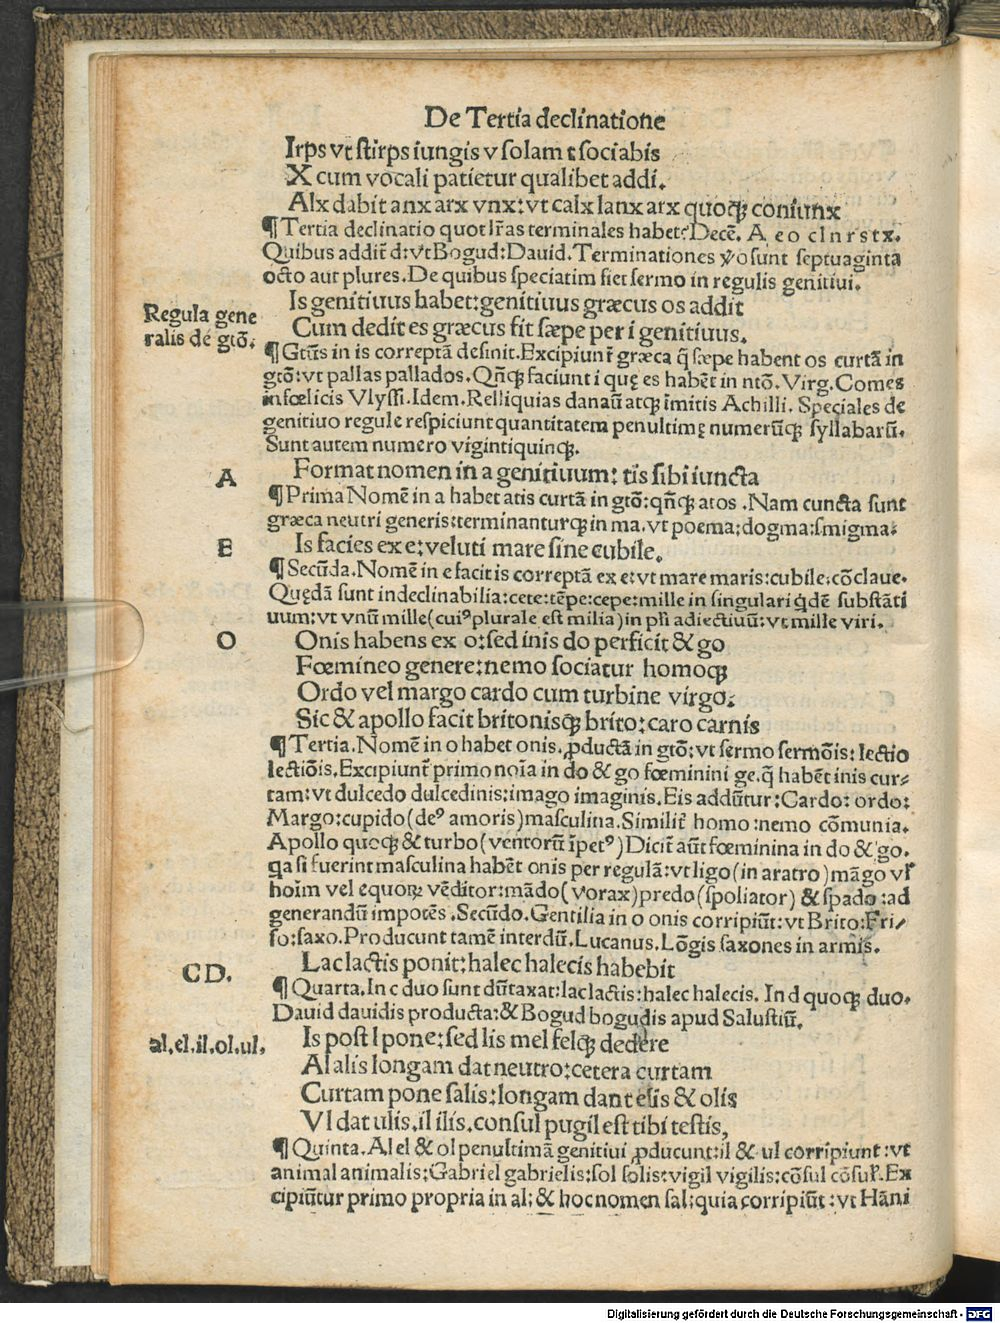 De Tertia declinatione
Irps vt stirps iungis v solam ⁊ sociabis
X cum vocali patietur qualibet addi.
Alx dabit anx arx vnx: vt calx lanx arx quoqꝫ coniunx
¶ Tertia declinatio quot lr̃as terminales habet? Decē. A e o c l n r s t x.
Quibus addit̃ d: vt Bogud: Dauid. Terminationes ỽo sunt septuaginta
octo aut plures. De quibus speciatim fiet sermo in regulis genitiui.
Is genitiuus habet: genitiuus græcus os addit
Regula gene
Cum dedit es græcus fit sæpe per i genitiuus.
ralis de gtō.
¶ Gtũs in is correptā desinit. Excipiunt̃ græca q̃ sæpe habent os curtā in
gtō: vt pallas pallados. Qñqꝫ faciunt i quę es habēt in ntō. Virg. Comes
infœlicis Vlyssi. Idem. Relliquias danaū atqꝫ īmitis Achilli. Speciales de
genitiuo regule respiciunt quantitatem penultimę numerūqꝫ syllabarū.
Sunt autem numero vigintiquinqꝫ.
A
Format nomen in a genitiuum: tis sibi iuncta
¶ Prima Nomē in a habet atis curtā in gtō: qñqꝫ atos. Nam cuncta sunt
græca neutri generis: terminanturqꝫ in ma. vt poema: dogma: smigma:
E
Is facies ex e: veluti mare sine cubile.
¶ Secūda. Nomē in e facit is correptā ex e: vt mare maris: cubile: cōclaue.
Quędā sunt indeclinabilia: cete: tēpe: cepe: mille in singulari q̇dē substāti
uum: vt vnū mille (cuiꝰ plurale est milia) in pli adiectiuū: vt mille viri.
O
Onis habens ex o: sed inis do perficit & go
Fœmineo genere: nemo sociatur homoqꝫ
Ordo vel margo cardo cum turbine virgo:
Sic & apollo facit britonisqꝫ brito: caro carnis
¶ Tertia. Nomē in o habet onis. ꝓductā in gtō: vt sermo sermōis: lectio
lectiōis. Excipiunt̃ primo noīa in do & go fœminini ge. q̃ habēt inis cur⸗
tam: vt dulcedo dulcedinis: imago imaginis. Eis addūtur: Cardo: ordo:
Margo: cupido (deꝰ amoris) masculina. Similit̃ homo: nemo cōmunia.
Apollo quoqꝫ & turbo (ventorū īpetꝰ) Dicit̃ aūt fœminina in do & go.
qa si fuerint masculina habēt onis per regulā: vt ligo (in aratro) māgo vl̃
hoīm vel equoꝝ vēditor: mādo (vorax) predo (spoliator) & spado: ad
generandū impotēs. Secūdo. Gentilia in o onis corripiūt: vt Brito: Fri⸗
so: saxo. Producunt tamē interdū. Lucanus. Lōgis saxones in armis.
CD.
Lac lactis ponit: halec halecis habebit
¶ Quarta. In c duo sunt dūtaxat: lac lactis: halec halecis. In d quoqꝫ duo.
Dauid dauidis producta: & Bogud bogudis apud Salustiū.
al. el. il. ol. ul.
Is post l pone: sed lis mel felqꝫ dedere
Al alis longam dat neutro: cetera curtam
Curtam pone salis: longam dant elis & olis
Vl dat ulis. il ilis. consul pugil est tibi testis,
¶ Quinta. Al el & ol penultimā genitiui ꝓducunt: il & ul corripiunt: vt
animal animalis: Gabriel gabrielis: sol solis: vigil vigilis: cōsul cōsul̃. Ex
cipiūtur primo propria in al: & hoc nomen sal: quia corripiūt: vt Hāni
Digitalisierung gefördert durch die Deutsche Forschungsgemeinschaft - DFG